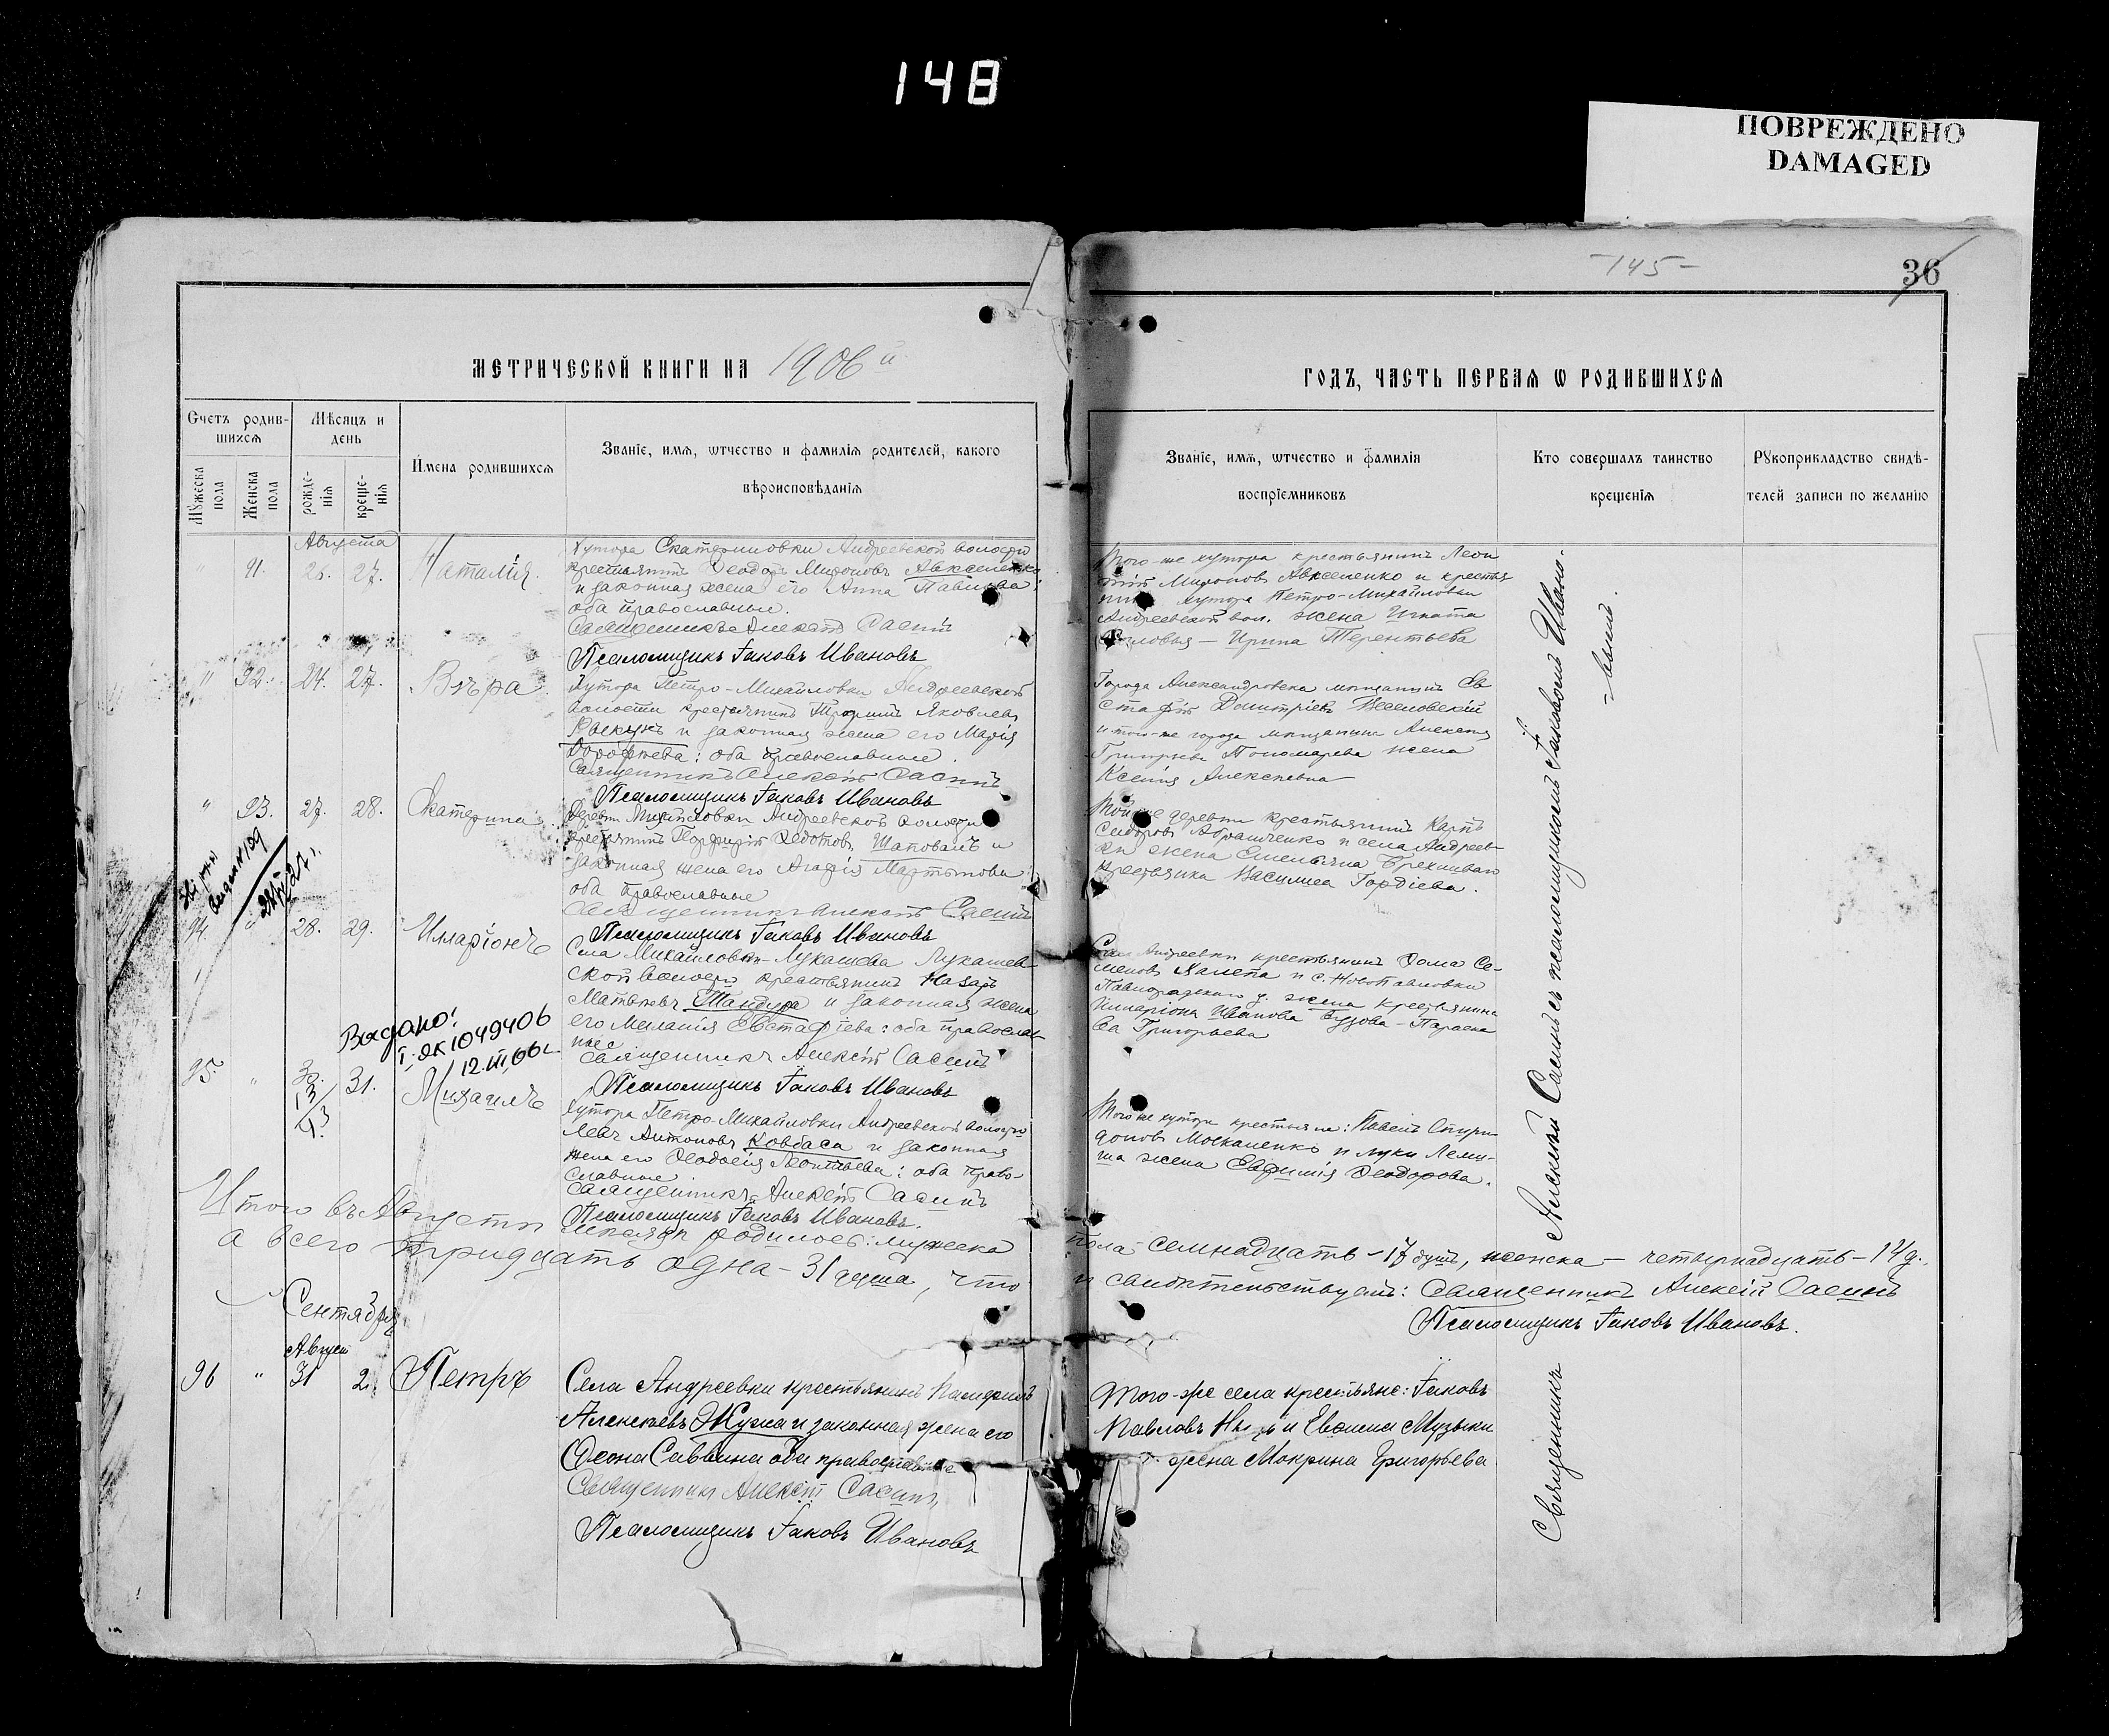 148
ПОВРЕЖДЕНО
DAMAGED
-145-
36
МЕТРИЧЕСКОЙ КНИГИ НА 1906 й
ГОДЪ, ЧАСТЬ ПЕРВАЯ Ѡ РОДИВШИХСЯ
Счетъ родив-
шихся
Мѣсяцъ и
день
Мужеска
пола
Женска
пола
рожде-
нія
креще-
нія
Имена родившихся
Званіе, имя, ѡтчество и фамилія родителей, какого
вѣроисповѣданія
Званіе, имя, ѡтчество и фамилія
воспріемниковъ
Кто совершалъ таинство
крещенія
Рукоприкладство свидѣ-
телей записи по желанію
Августа
" 91. 26. 27. Наталія.
Хутора Екатериновки Андреевской волости
крестьянинъ Ѳеодоръ Мироновъ Авксененко
и законная жена его Анна Павлова:
оба православные.
Священникъ Алексій Сасинъ
Псаломщикъ Іаковъ Ивановъ
Того-же хутора крестьянинъ Леон
тій Мироновъ Авксененко и крестья
хутора Петро-Михайловки
Андреевской вол. жена Игната
— Ирина Терентьева
" 92. 24. 27. Вѣра.
Хутора Петро-Михайловки Андреевской
волости крестьянинъ Трофимъ Яковлевъ
и законная жена его Марія
Дороѳеева: оба православные.
Священникъ Алексій Сасинъ
Псаломщикъ Іаковъ Ивановъ
Города Александровска мѣщанинъ Ев
стафій Димитріевъ Веселовскій
и того-же города мѣщанина Алексея
Григорьева Пономарева жена
Ксенія Алексеевна —
" 93. 27. 28. Екатерина.
Деревни Михайловки Андреевской волости
крестьянинъ Порфирій Ѳедотовъ Шаповалъ и
законная жена его Агафія Мартынова
оба православные
Священникъ Алексій Сасинъ
Псаломщикъ Іаковъ Ивановъ
Той же деревни крестьянинъ Карпъ
Сидоровъ Абрамченко и села Андреев-
ки жена Емельяна
крестьянка Василиса Гордіева.
94. " 28. 29. Илларіонъ
Села Михайловки-Лукашева Лукашев-
ской волости крестьянинъ Назаръ
Матвѣевъ Шандура и законная жена
его Меланія Евстафіева: оба православ-
ные
Священникъ Алексій Сасинъ
Псаломщикъ Іаковъ Ивановъ
Села Андреевки крестьянинъ Ѳома Се-
меновъ и с. Ново Павловки
Павлоградского у. жена крестьянина
Илларіона Иванова Бузова - Параске
ва Григорьева
Выдано!
I; ЯК 1049406
12.III.66г.
95. " 30. 31. Михаилъ
13/3
Хутора Петро-Михайловки Андреевской волости
Левъ Антоновъ Ковбаса и законная
жена его Ѳеодосія Леонтьева: оба право-
славные
Священникъ Алексій Сасинъ
Псаломщикъ Іаковъ Ивановъ.
Того же хутора крестьяне: Павелъ Спири-
доновъ Москаленко и Луки Леми-
ша жена Евфимія Ѳеодорова.
Итого въ Августѣ мѣсяцѣ родилось: мужеска пола семнадцать - 17 душъ, женска — четырнадцать - 14 д.,
а всего тридцать одна - 31 душа, что и свидѣтельствуемъ: Священникъ Алексій Сасинъ
Псаломщикъ Іаковъ Ивановъ.
Сентября
Август
96 " 31 2. Петръ
Села Андреевки крестьянинъ Памфилъ
Алексѣевъ Жужа и законная жена его
Ѳеона Саввина оба православные
Священникъ Алексій Сасинъ
Псаломщикъ Іаковъ Ивановъ
Того-же села крестьяне: Іаковъ
Павловъ и Музыки
жена Мокрина Григорьева
Священникъ Алексій Сасинъ съ псаломщикомъ Іаковомъ Ивано-
-вымъ.